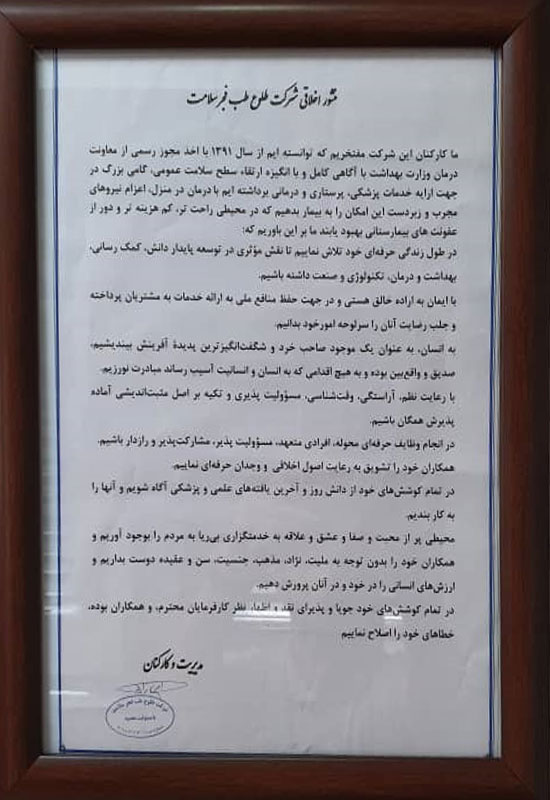 منشور اخلاقی شرکت طلوع طب فجر سلامت
ما کارکنان این شرکت مفتخریم که توانسته ایم از سال ۱۳۹۱ با اخذ مجوز رسمی از معاونت
درمان وزارت بهداشت با آگاهی کامل و با انگیزه ارتقاء سطح سلامت عمومی، گامی بزرگ در
جهت ارایه خدمات پزشکی، پرستاری و درمانی برداشته ایم با درمان در منزل، اعزام نیروهای
مجرب و زبردست این امکان را به بیمار بدهیم که در محیطی راحت تر، کم هزینه تر و دور از
عفونت های بیمارستانی بهبود یابند ما بر این باوریم که:
در طول زندگی حرفه‌ای خود تلاش نماییم تا نقش مؤثری در توسعه پایدار دانش، کمک رسانی،
بهداشت و درمان، تکنولوژی و صنعت داشته باشیم.
با ایمان به اراده خالق هستی و در جهت حفظ منافع ملی به ارائه خدمات به مشتریان پرداخته
و جلب رضایت آنان را سرلوحه امورخود بدانیم.
به انسان، به عنوان یک موجود صاحب خرد و شگفت‌انگیزترین پدیدهٔ آفرینش بیندیشیم،
صدیق و واقع‌بین بوده و به هیچ اقدامی که به انسان و انسانیت آسیب رساند مبادرت نورزیم.
با رعایت نظم، آراستگی، وقت‌شناسی، مسؤولیت پذیری و تکیه بر اصل مثبت‌اندیشی آماده
پذیرش همگان باشیم.
در انجام وظایف حرفه‌ای محوله، افرادی متعهد، مسؤولیت پذیر، مشارکت‌پذیر و رازدار باشیم.
همکاران خود را تشویق به رعایت اصول اخلاقی و وجدان حرفه‌ای نماییم.
در تمام کوشش‌های خود از دانش روز و آخرین یافته‌های علمی و پزشکی آگاه شویم و آنها را
به کار بندیم.
محیطی پر از محبت و صفا و عشق و علاقه به خدمتگزاری بی‌ریا به مردم را بوجود آوریم و
همکاران خود را بدون توجه به ملیت، نژاد، مذهب، جنسیت، سن و عقیده دوست بداریم و
ارزش‌های انسانی را در خود و در آنان پرورش دهیم.
در تمام کوشش‌های خود جویا و پذیرای نقد و اظهار نظر کارفرمایان محترم، و همکاران بوده،
خطاهای خود را اصلاح نماییم
مدیریت و کارکنان
شرکت طلوع طب فجر سلامت
با مسئولیت محدود